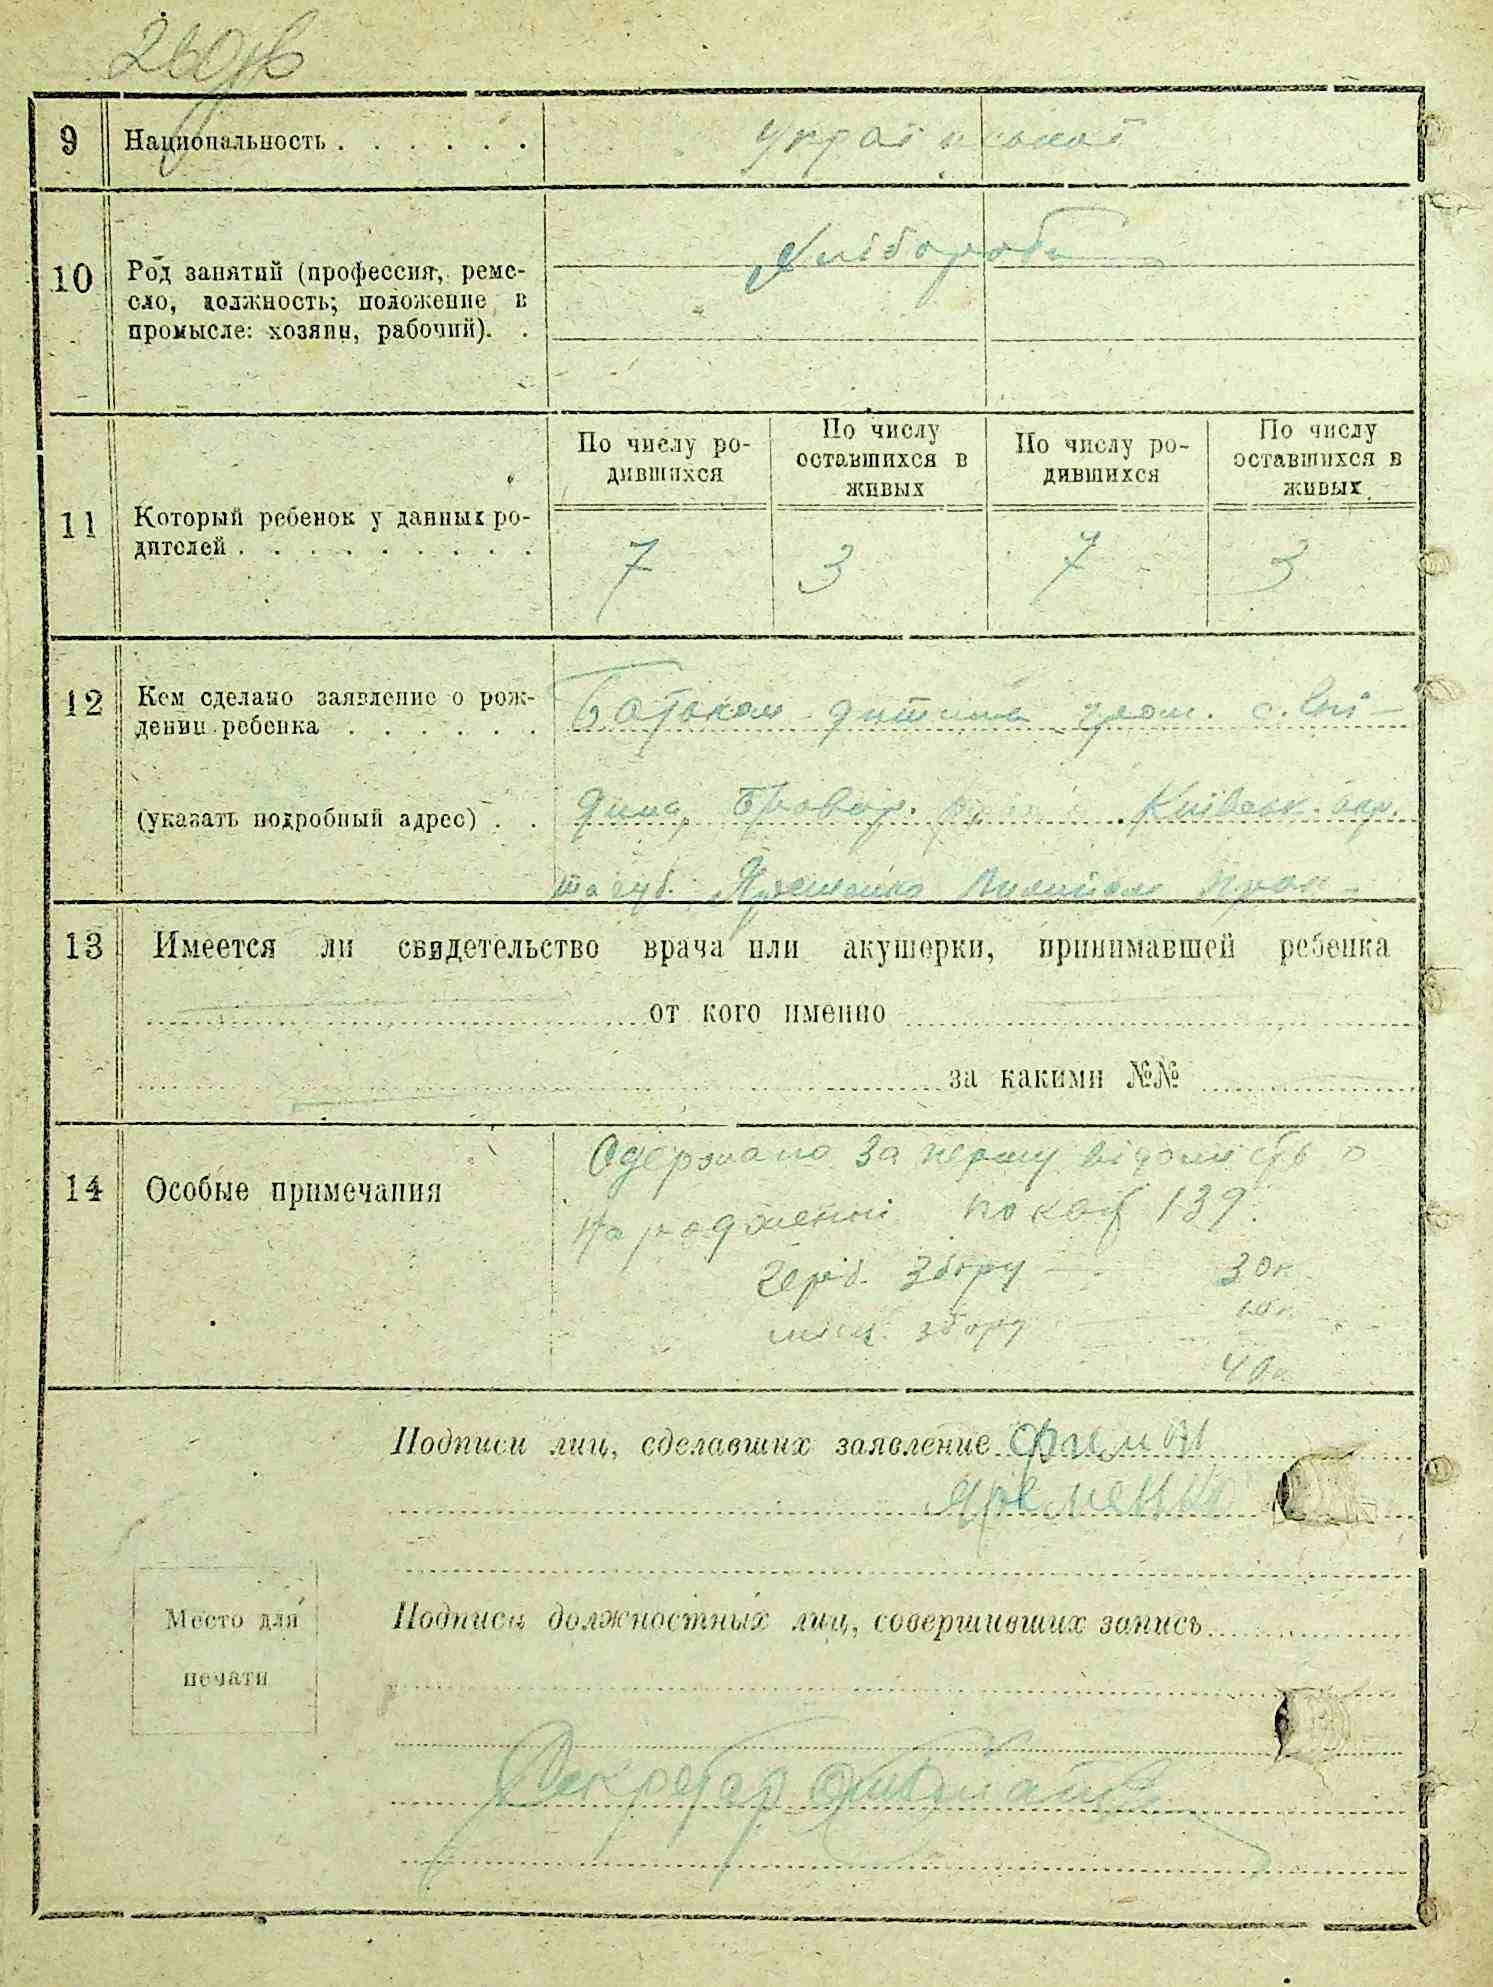 260 зв
9 Национальность . . . . . . української
10 Род занятий (профессия, ремесло, должность; положение в промысле: хозяин, рабочий). . Хлібороби
По числу родившихся
По числу оставшихся в живых
По числу родившихся
По числу оставшихся в живых
11 Который ребенок у данных родителей . . . . . . . . .
7 3 7 3
12 Кем сделано заявление о рождении ребенка . . . . . . Батьком дитини гром. с. Сві-
(указать подробный адрес) . . Бровар. Київськ. окр.
та губ. Яременко
13 Имеется ли свидетельство врача или акушерки, принимавшей ребенка
от кого именно
за какими №№
14 Особые примечания
Одержано за першу відомість о
народженні по кв 139.
герб. збору — 30к
місц. збору 10к.
40к
Подписи лиц, сделавших заявление
Яременко
Место для печати
Подписи должностных лиц, совершивших запись
Секретар